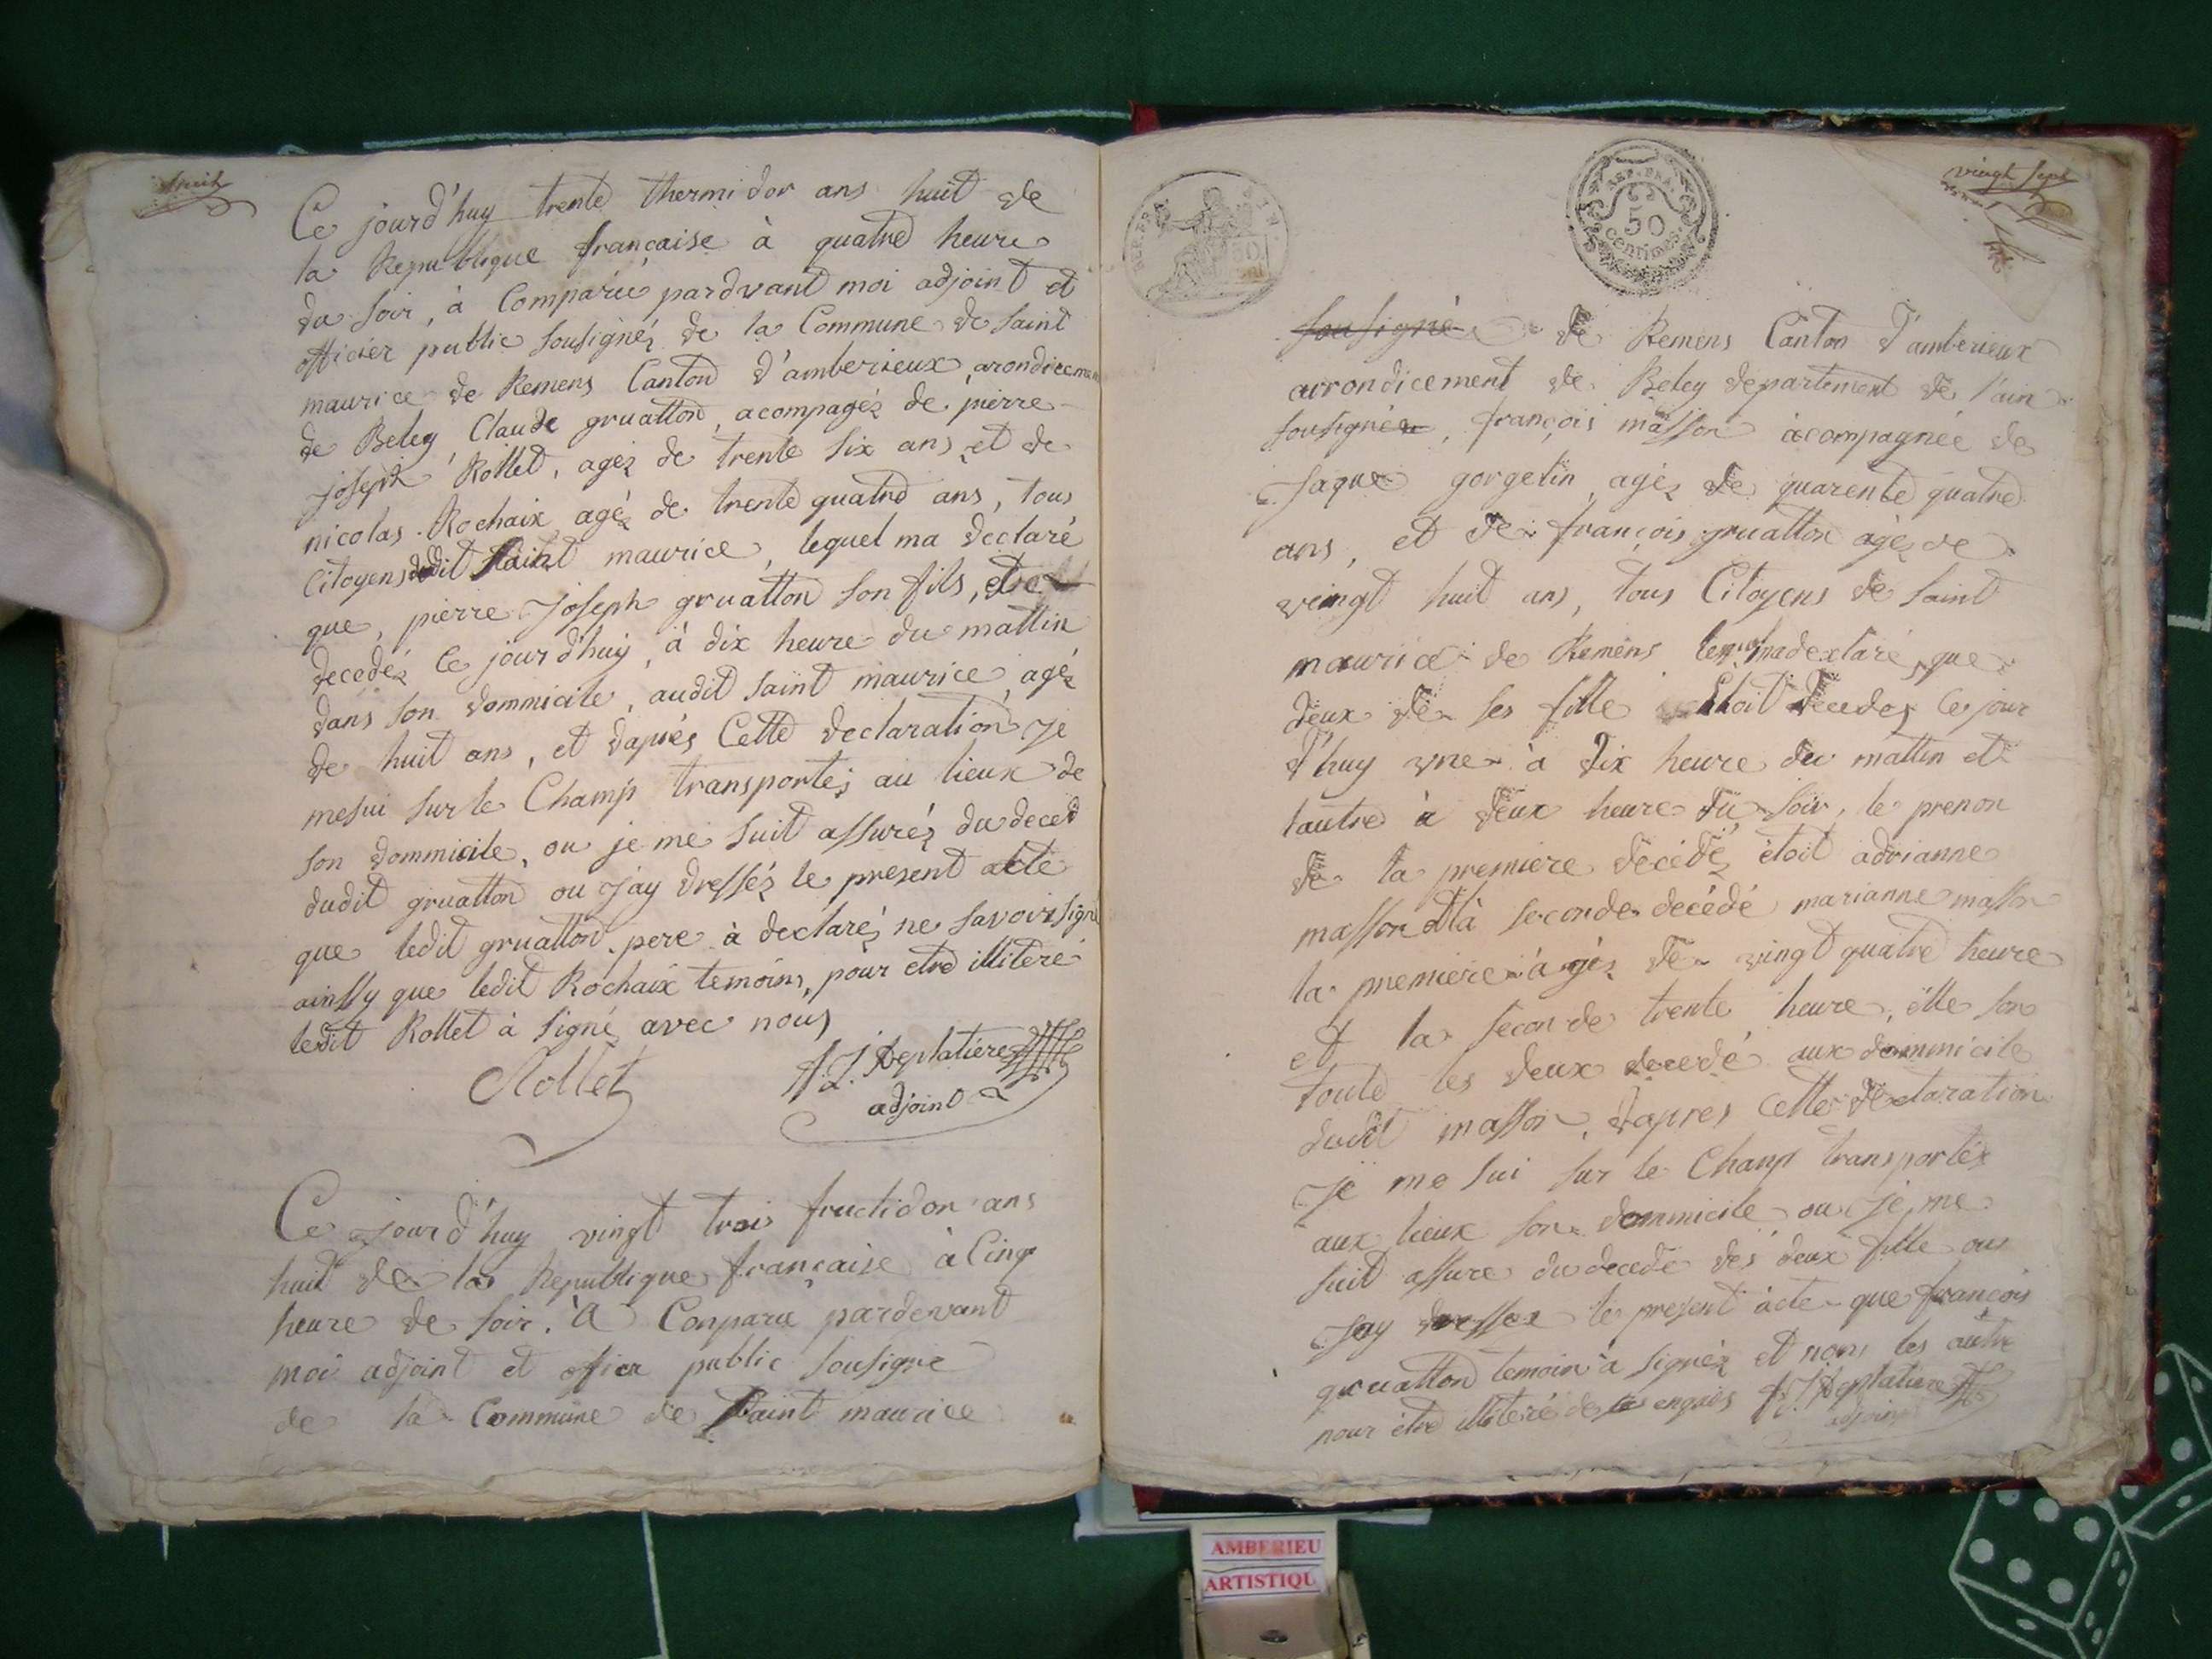 huit
Ce jourd'huy trente thermidor ans huit de
la Republique française à quatre heure
du soir, à Comparu pardvant moi adjoint et
officier public sousignéz de la Commune de saint
maurice de Remens Canton d'amberieux, arondicem
de Beley, Claude gruatton, acompagéz de pierre
joseph Rollet, agéz de trente six ans, et de
nicolas Rochaix agéz de trente quatre ans, tous
Citoyens dudit saint maurice, lequel ma declaré
que, pierre Joseph gruatton son fils, est
decedéz Ce jourd'huy, à dix heure du mattin
dans son dommicile, audit saint maurice, agéz
de huit ans, et daprés Cette declaration je
mesui sur le Champ transportéz au lieux de
son dommicile, ou je me suit assuréz du deced
dudit gruatton ou Jay dresséz le present acte
que ledit gruatton pere à declaréz ne savoir sign
ainssy que ledit Rochaix temoins, pour etre illiteré
ledit Rollet à signé avec nous
Rollet
adjoint
Ce jourd'huy vingt trois fructidor ans
huit de la Republique française à Cinq
heure de soir. A Conparu pardevant
moi adjoint et officer public sousigné
de la Commune de saint maurice
REP. FRA.
50
REP. FRA.
50
centimes.
vingt sept
sousigné de Remens Canton d'amberieux
arrondicement de Beley departement de l'ain
sousignée, françois masson àcompagnée de
Jaque gorgelin agéz de quarente quatre
ans, et de françois gruatton agéz de
veingt huit ans, tous Citoyens de saint
maurice de Remens lequel ma declaré que
deux de ses fille Etoit decedez Ce jour
d'huy une à dix heure du mattin et
lautre à deux heure du soir, le prenon
de la premiere décédé étoit adrianne
masson et là seconde decédé marianne masson
la premiere àgéz de vingt quatre heure
et la seconde trente heure, élle son
toute les deux decedé aux dommicile
dudit masson, daprès Cette declaration
Je me sui sur le Champ transportéz
aux lieux son dommicile ou Je me
suit assure du decede des deux fille ou
Jay dressez le present acte que françois
gruatton temoin à signéz et non les autre
pour être illiteré de
adjoint
AMBERIEU
ARTISTIQU